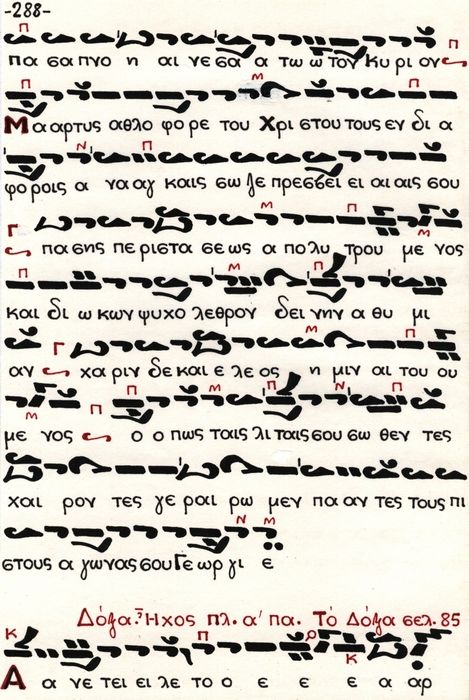 -288-
πα σα πνο η αι νε σα α τω ω τον Κυ ρι ον
Μα αρτυς αθλο φο ρε του Χρι στου τους εν δι α
φο ροις α να αγ καις σω ζε πρεσβει ει αι αις σου
πα σης πε ρι στα σε ως α πο λυ τρου με νος
και δι ω κων ψυχο λεθρον δει νην α θυ μι
αν χα ριν δε και ε λε ος η μιν αι του ου
με νος ο ο πως ταις λι ταις σου σω θεν τες
χαι ρον τες γε ραι ρω μεν πα αν τες τους πι
στους α γωνας σου Γε ωρ γι ε
Δόξα. Ἦχος πλ. α' πα. Τὸ Δόξα σελ. 85
Α α νε τει ει λε το ο ε ε ε α αρ